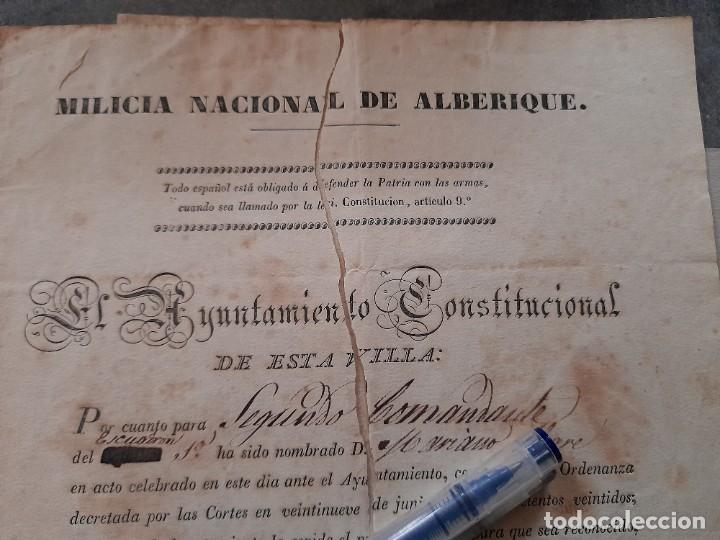 MILICIA NACIONAL DE ALBERIQUE.
Todo español está obligado á defender la Patria con las armas,
cuando sea llamado por la lei. Constitucion, artículo 9.º
El Ayuntamiento Constitucional
DE ESTA VILLA:
Por cuanto para Segundo Comandante
Escuadron
del 1º ha sido nombrado D. Mariano
en acto celebrado en este dia ante el Ayuntamiento, Ordenanza
decretada por las Cortes en veintinueve de juni veintidos;
para que sea reconocido,
todocoleccion